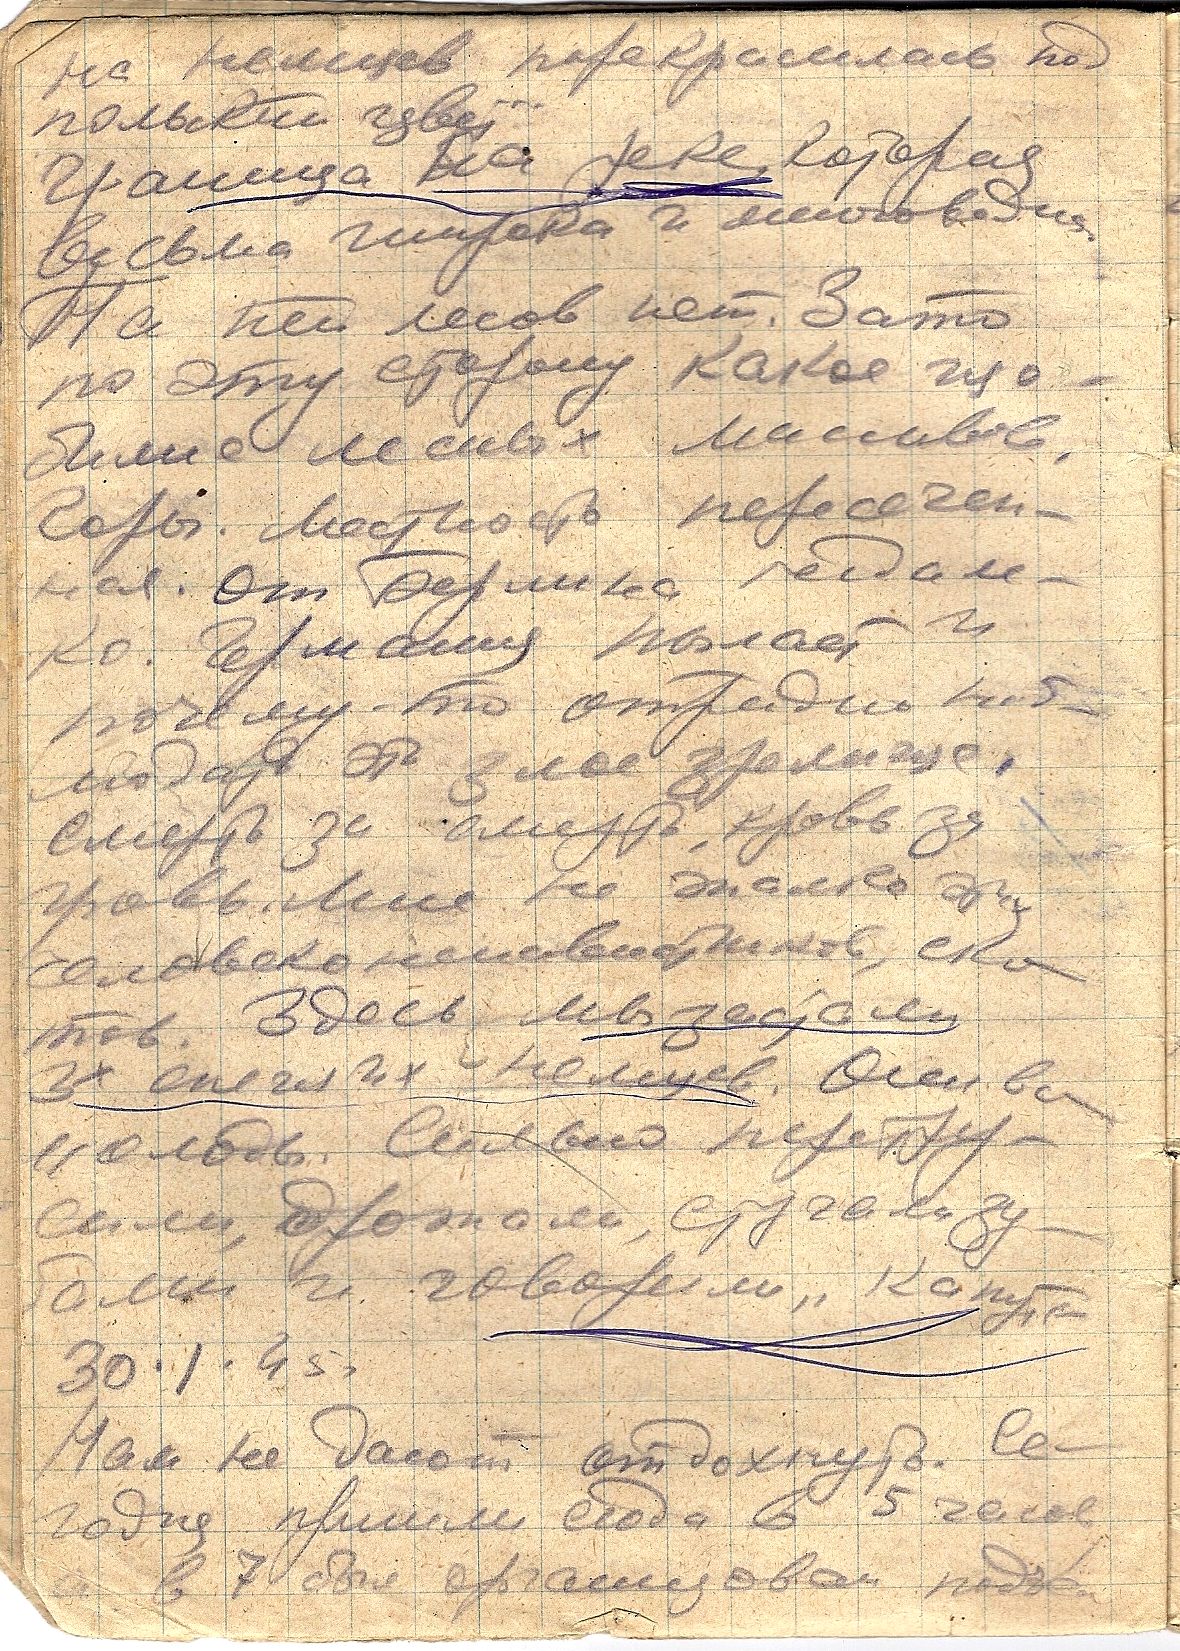 на немцев перекрасилась под
польский цвет...
Граница на реке, которая
весьма широка и многоводна.
На ней лесов нет. Зато
по эту сторону какое изо-
билие лесных массивов.
Горы. Местность пересечен-
ная. От Берлина недале-
ко. Германия пылает и
почему-то отрадно наб-
людать это злое зрелище.
Смерть за смерть, кровь за
кровь. Мне не жалко этих
человеконенавистников, ско-
тов. Здесь мы застали
3х спящих немцев. Оба
молоды. Сильно перетру-
сили, дрожали, стучали зу-
бами и говорили „капут"
30.1.45г
Нам не дают отдохнуть. Се-
годня пришли сюда в 5 часов
а в 7 был организован